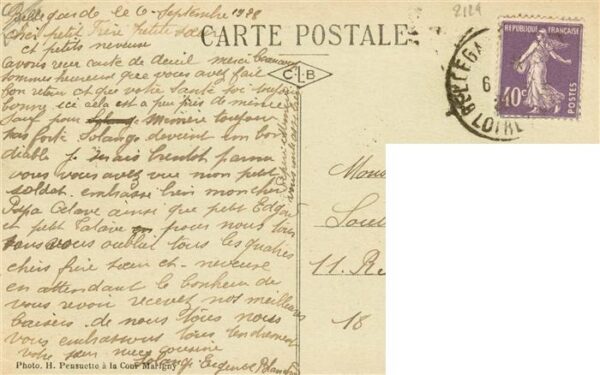 Bellegarde le 6 Septembre 1928
2129
cher petit Frère petite sœur
et petits neveuse
avons reçu carte de deuil merci beaucoup
sommes heureuse que vous avez fait
bon retour et que votre santé soi toujours
bonne ici cela est a peu près de même
sauf pour Mémère toujour
pas forte Solange devient un bon
diable
vous vous avez vue mon petit
soldat embrassé bien mon cher
Papa Octave ainsi que petit
et petit pour nous tous
vous oublait tous les quatres
chers frère sœur et neveuse
en attendant le bonheur de
vous revoir recevez nos meilleurs
baisers de nous tous nous
vous embrassons tous tendrement
votre sœur nièce cousine
Solange
CARTE POSTALE
C.L.B
RÉPUBLIQUE FRANÇAISE
10c
POSTES
BELLEGA
6
LOIRE
11. R
18
Photo. H. Pensuette à la Cour Marigny